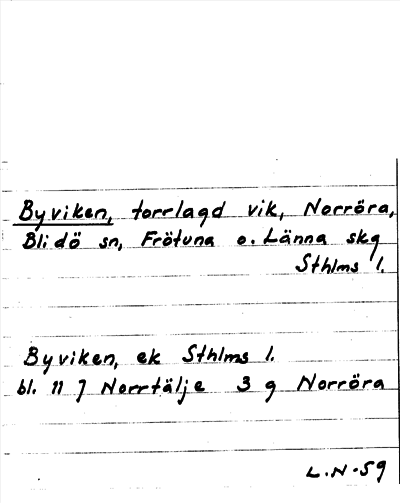 Byviken, torrlagd vik, Norröra,
Blidö sn, Frötuna o. Länna skg
Sthlms l.
Byviken, ek Sthlms l.
bl. 11 J Norrtälje 3 g Norröra
L.N-59